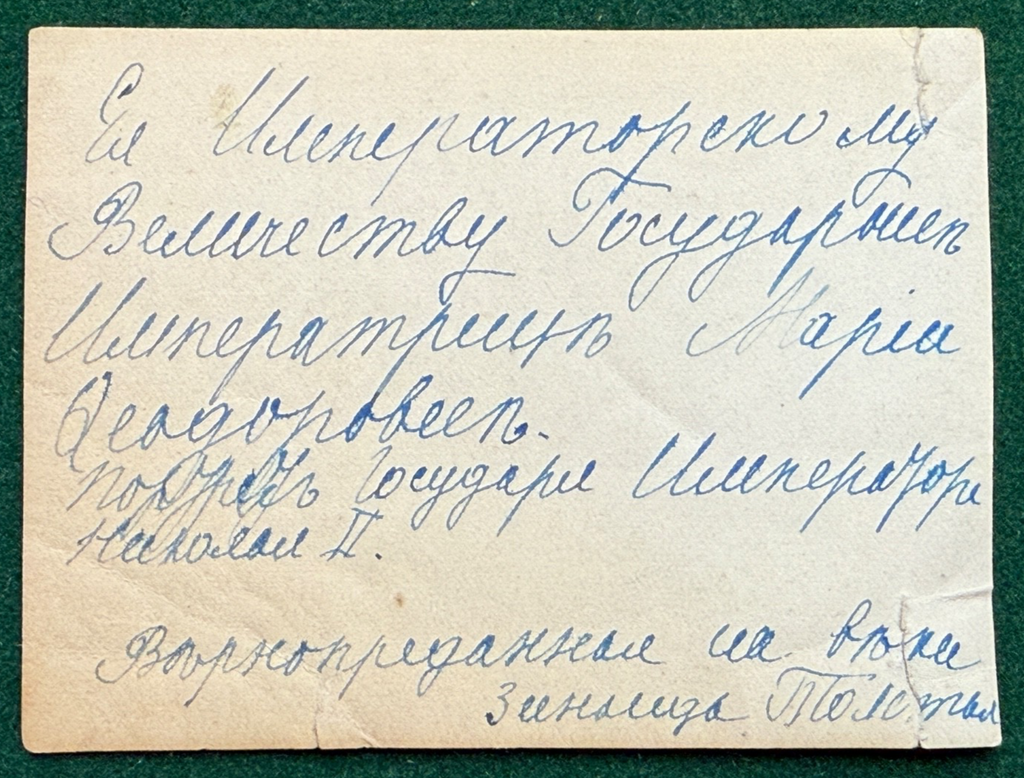 Ея Императорскому
Величеству Государынѣ
Императрицѣ Маріи
Ѳеодоровнѣ.
Портретъ Государя Императора
Николая II.
Вѣрнопреданная на вѣки
Зинаида Толстая